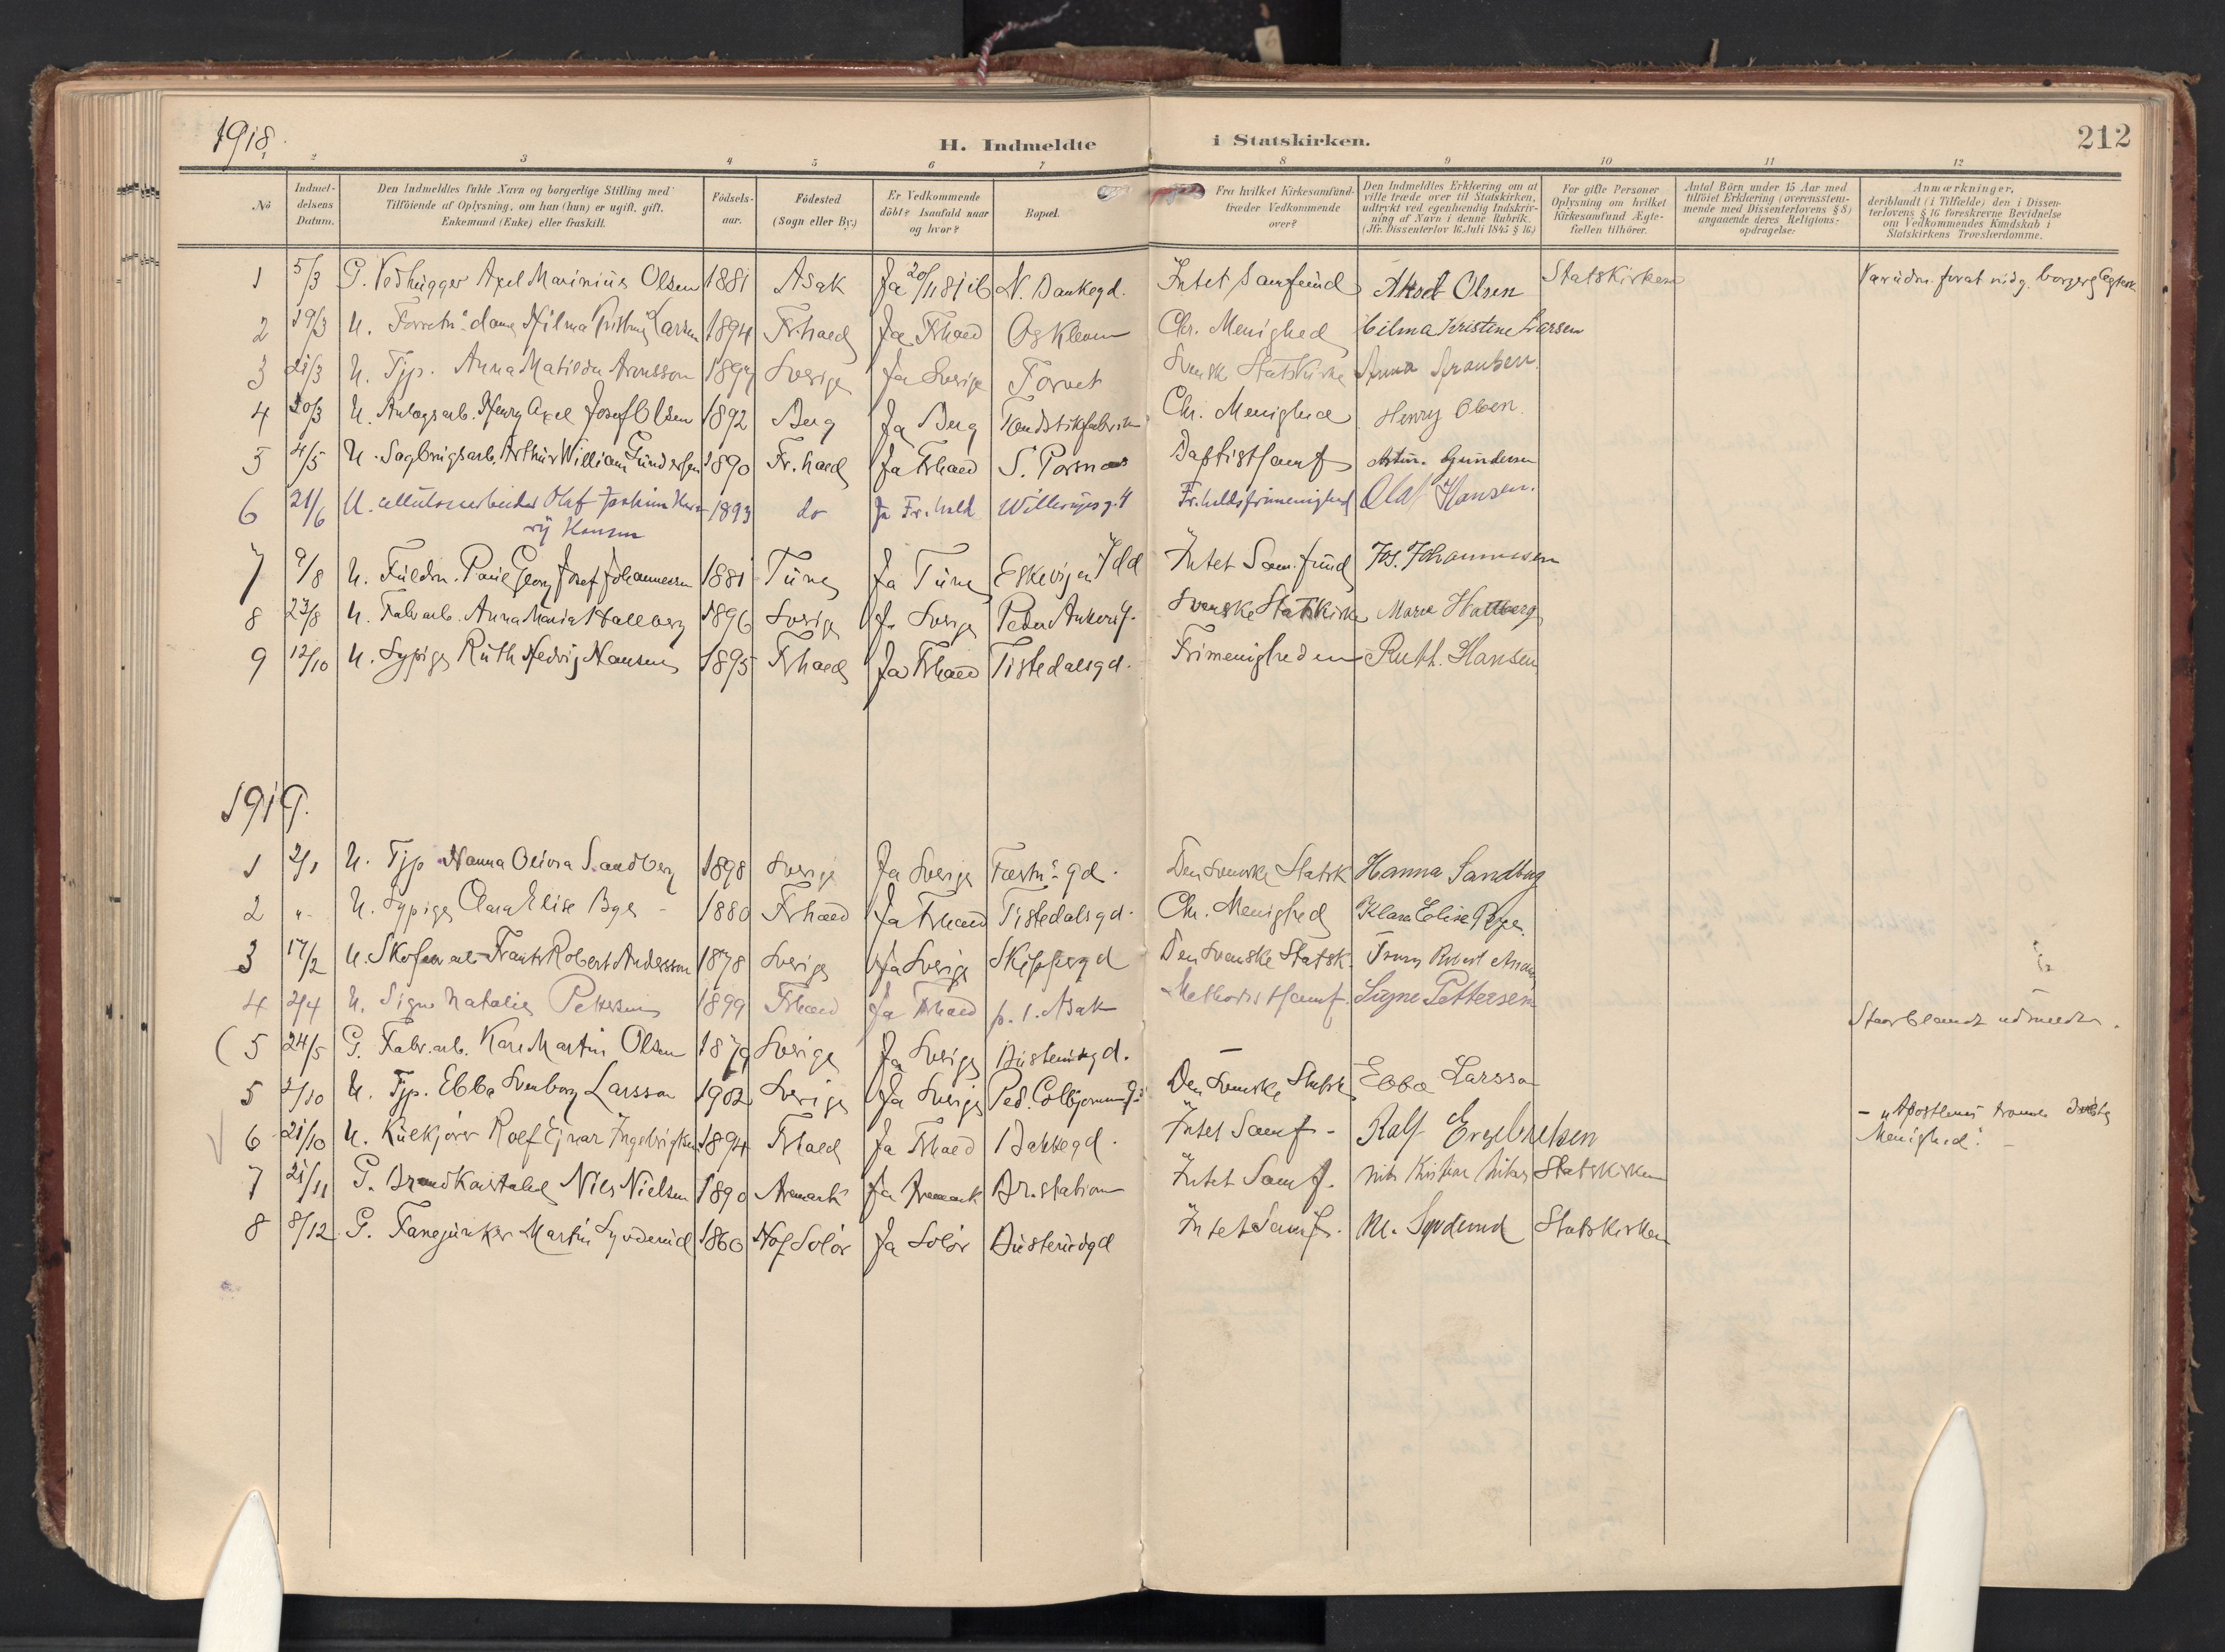 1918.
H. Indmeldte i Statskirken.
212
1 2 3 4 5 6 7 8 9 10 11 12
No
Indmeldelsens Datum.
Den Indmeldtes fulde Navn og borgerlige Stilling med
Tilföiende af Oplysning, om han (hun) er ugift, gift,
Enkemand (Enke) eller fraskilt.
Födsels-
aar.
Födested
(Sogn eller By.)
Er Vedkommende
döbt? Isaafald naar
og hvor?
Bopæl.
Fra hvilket Kirkesamfund
træder Vedkommende
over?
Den Indmeldtes Erklæring om at
ville træde over til Statskirken,
udtrykt ved egenhændig Indskriv-
ning af Navn i denne Rubrik.
(Jfr. Dissenterlov 16. Juli 1845 § 16.)
For gifte Personer
Oplysning om hvilket
Kirkesamfund Ægte-
fællen tilhörer.
Antal Börn under 15 Aar med
tilföiet Erklæring (overensstem-
mende med Dissenterlovens § 8)
angaaende deres Religions-
opdragelse.
Anmærkninger,
deriblandt (i Tilfælde) den i Dissen-
terlovens § 16 foreskrevne Bevidnelse
om Vedkommendes Kundskab i
Statskirkens Troeslærdomme.
1 5/3 G. Vedhugger Axel Marinius Olsen 1881 Asak Ja 20/11 81 ib N. Bankegd. Intet Samfund Aksel Olsen Statskirken
2 19/3 U. Hilma Kristine Larsen 1894 Frhald Ja Frhald Chr. Menighed Hilma Kristine Larsen
3 21/3 U. Tjp. Anna Matilda Aronsson 1897 Sverige Ja Sverige Torvet Svensk Statskirke Anna Aronsen
4 30/3 U. Anlægsarb. Henry Axel Josef Olsen 1892 Berg Ja Berg Chr. Menighed Henry Olsen
5 4/5 U. Sagbrugsarb. Arthur William Gundersen 1890 Fr.hald Ja Frhald Baptistsamf Artur Gundersen
6 21/6 U. Olaf Joakim
Hansen 1893 do Ja Fr.hald Olaf Hansen.
7 9/8 U. Fuldm. Paul Georg Josef Johannessen 1881 Tune Ja Tune Eskevigen Idd Intet Samfund Jos. Johannessen
8 23/8 U. Fabr.arb. Anna Maria Hallberg 1896 Sverige Ja Sverige Svenske Statskirke Maria Hallberg
9 12/10 U. Sypige Ruth Hedvig Hansen 1895 Frhald Ja Frhald Tistedalsgd. Frimenigheden Ruth. Hansen
1919.
1 2/1 U. Tjp Hanna Olivia Sandberg 1898 Sverige Ja Sverige Den svenske Statsk Hanna Sandberg
2 "- U. Sypige Clara Elise Bye 1880 Frhald Ja Frhald Tistedalsgd. Chr. Menighed Klara Elise Bye
3 17/2 U. Skofabr. arb Frants Robert Andersson 1878 Sverige Ja Sverige Skippergd Den svenske Statsk.
4 2/4 U. Signe Natalie Pettersen 1899 Frhald Ja Frhald p. t. Asak Methodistsamf. Signe Pettersen
(5 24/5 G. Fabr.arb. Karl Martin Olsen 1879 Sverige Ja Sverige Busterudgd. –
5 2/10 U. Tjp. Ebba Svenborg Larsson 1902 Sverige Ja Sverige Den svenske Statsk Ebba Larsson
6 21/10 U. Kulkjører Rolf Ejnar 1894 Frhald Ja Frhald Bakkegd. Intet Samf -
7 21/11 G. Brandkonstabel Nils Nielsen 1890 Aremark Ja Aremark Br.station Intet Samf. Statskirken
8 8/12 G. Fanejunker Martin Syvderud 1860 Hof Solør Ja Solør Busterudgd Intet Samf. M. Syvderud Statskirken